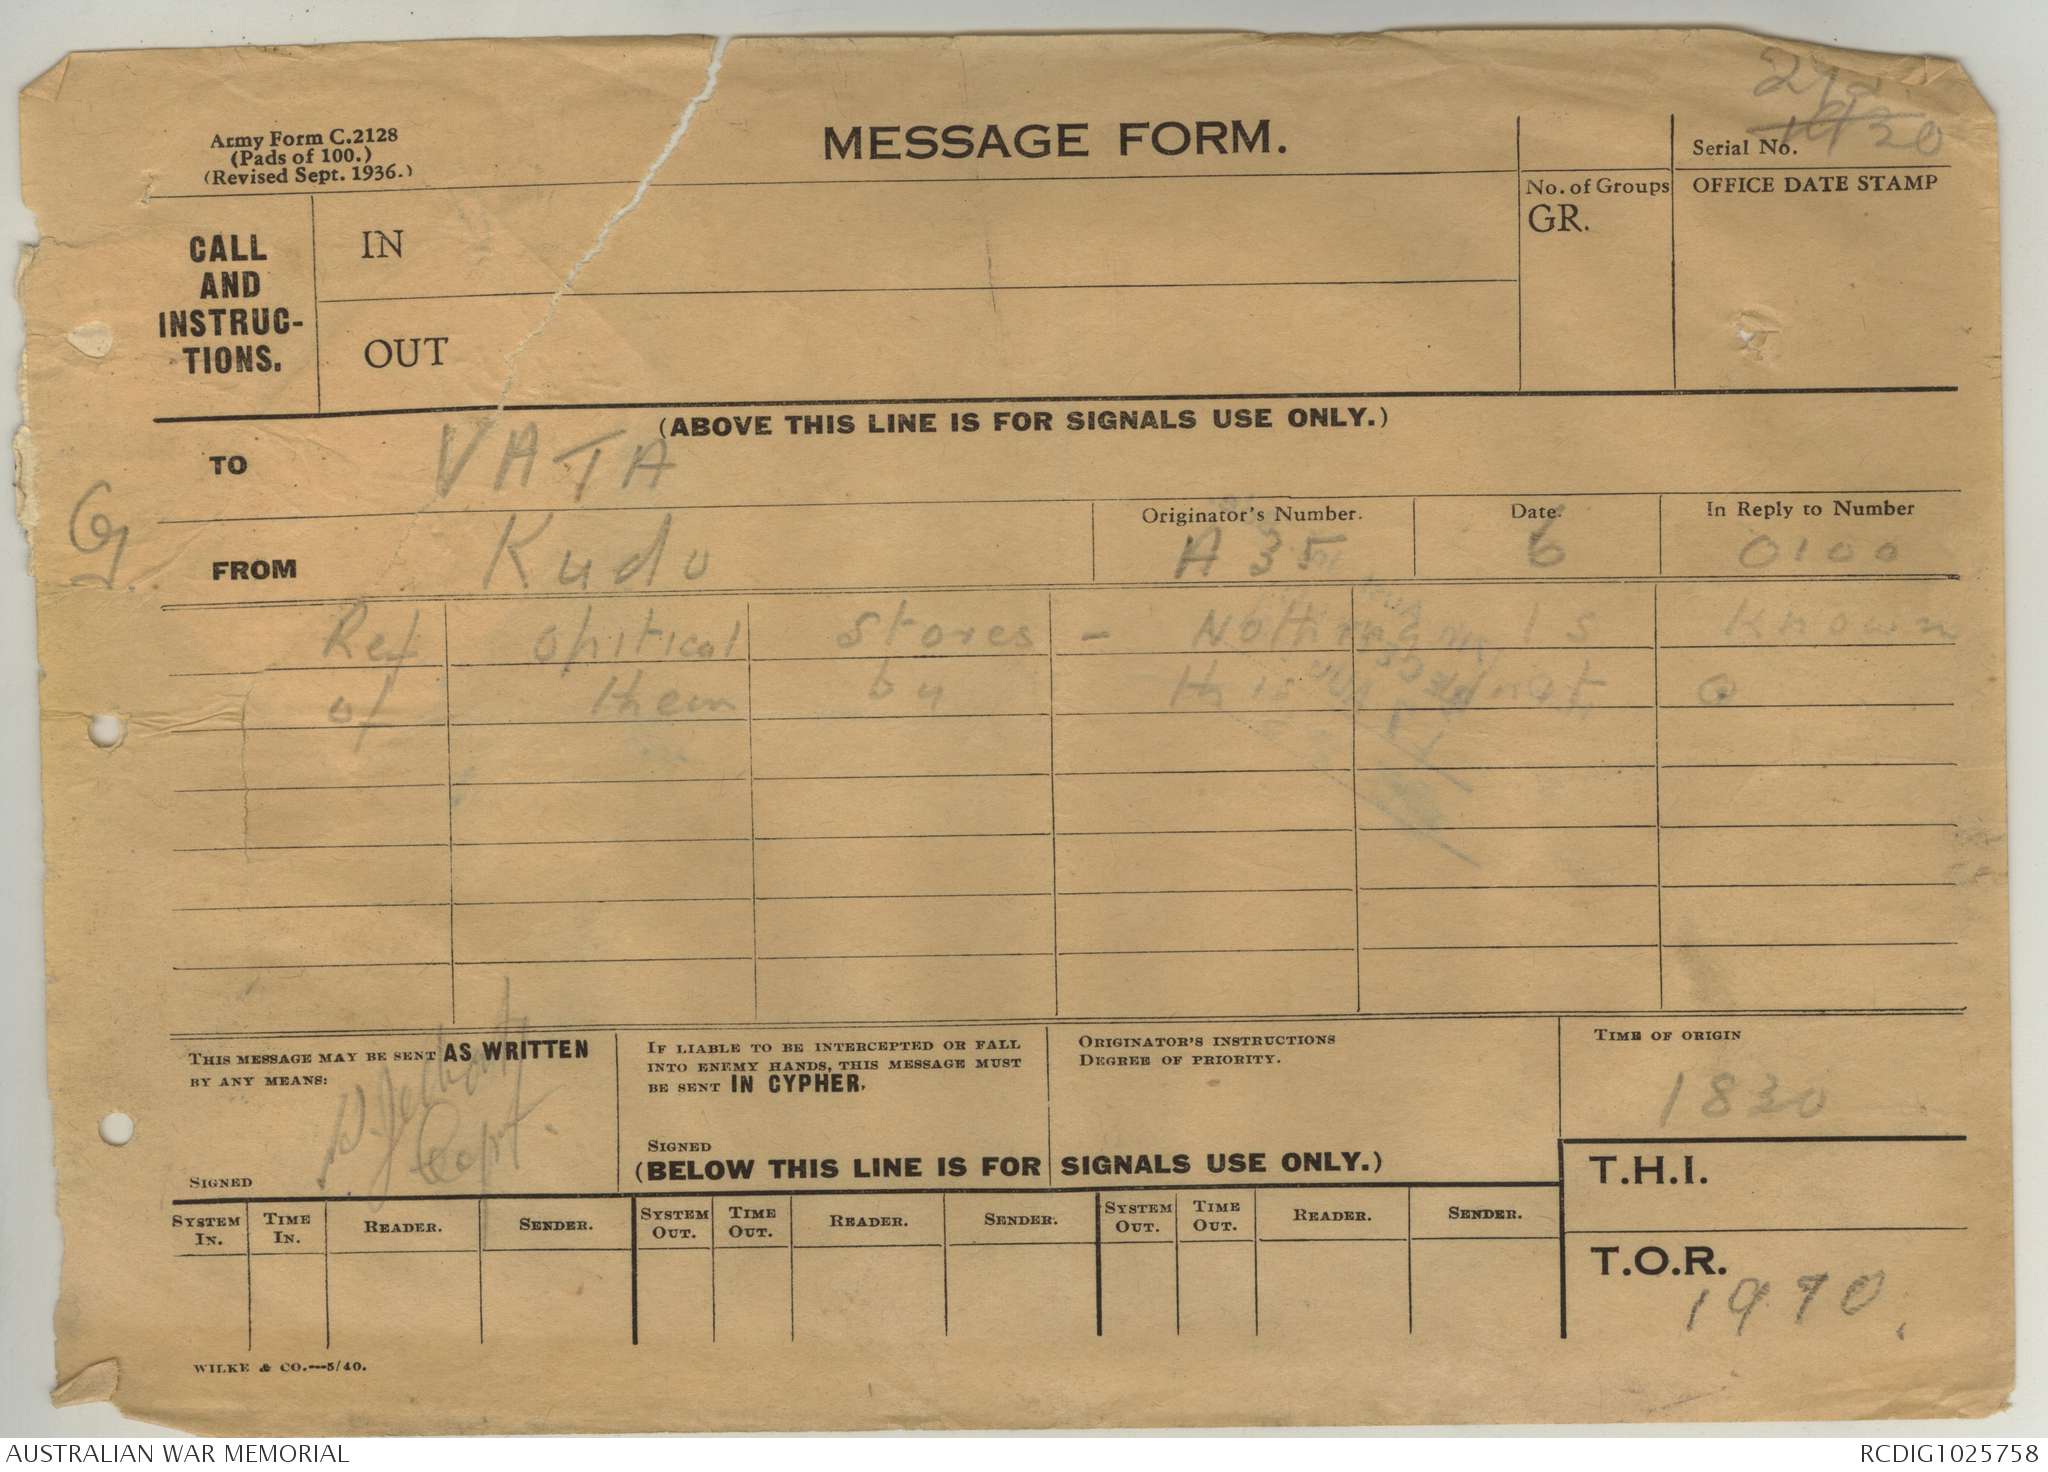 Army Form C.2128
(Pads of 100.)
(Revised Sept. 1936.)
MESSAGE FORM.
Serial No.
No. of Groups
GR.
OFFICE DATE STAMP
CALL
AND
INSTRUC-
TIONS.
IN
OUT
(ABOVE THIS LINE IS FOR SIGNALS USE ONLY.)
TO VATA
G
FROM Kudu
Originator's Number.
A 35
Date.
6
In Reply to Number
0100
Ref opitical stores - Nothing is known
of them by this unit
THIS MESSAGE MAY BE SENT AS WRITTEN
BY ANY MEANS:
Capt.
SIGNED
IF LIABLE TO BE INTERCEPTED OR FALL
INTO ENEMY HANDS, THIS MESSAGE MUST
BE SENT IN CYPHER.
SIGNED
ORIGINATOR'S INSTRUCTIONS
DEGREE OF PRIORITY.
TIME OF ORIGIN
1830
(BELOW THIS LINE IS FOR SIGNALS USE ONLY.)
T.H.I.
T.O.R.
1910.
SYSTEM IN. TIME IN. READER. SENDER. SYSTEM OUT. TIME OUT. READER. SENDER. SYSTEM OUT. TIME OUT. READER. SENDER.
WILKE & CO.—5/40.
AUSTRALIAN WAR MEMORIAL
RCDIG1025758